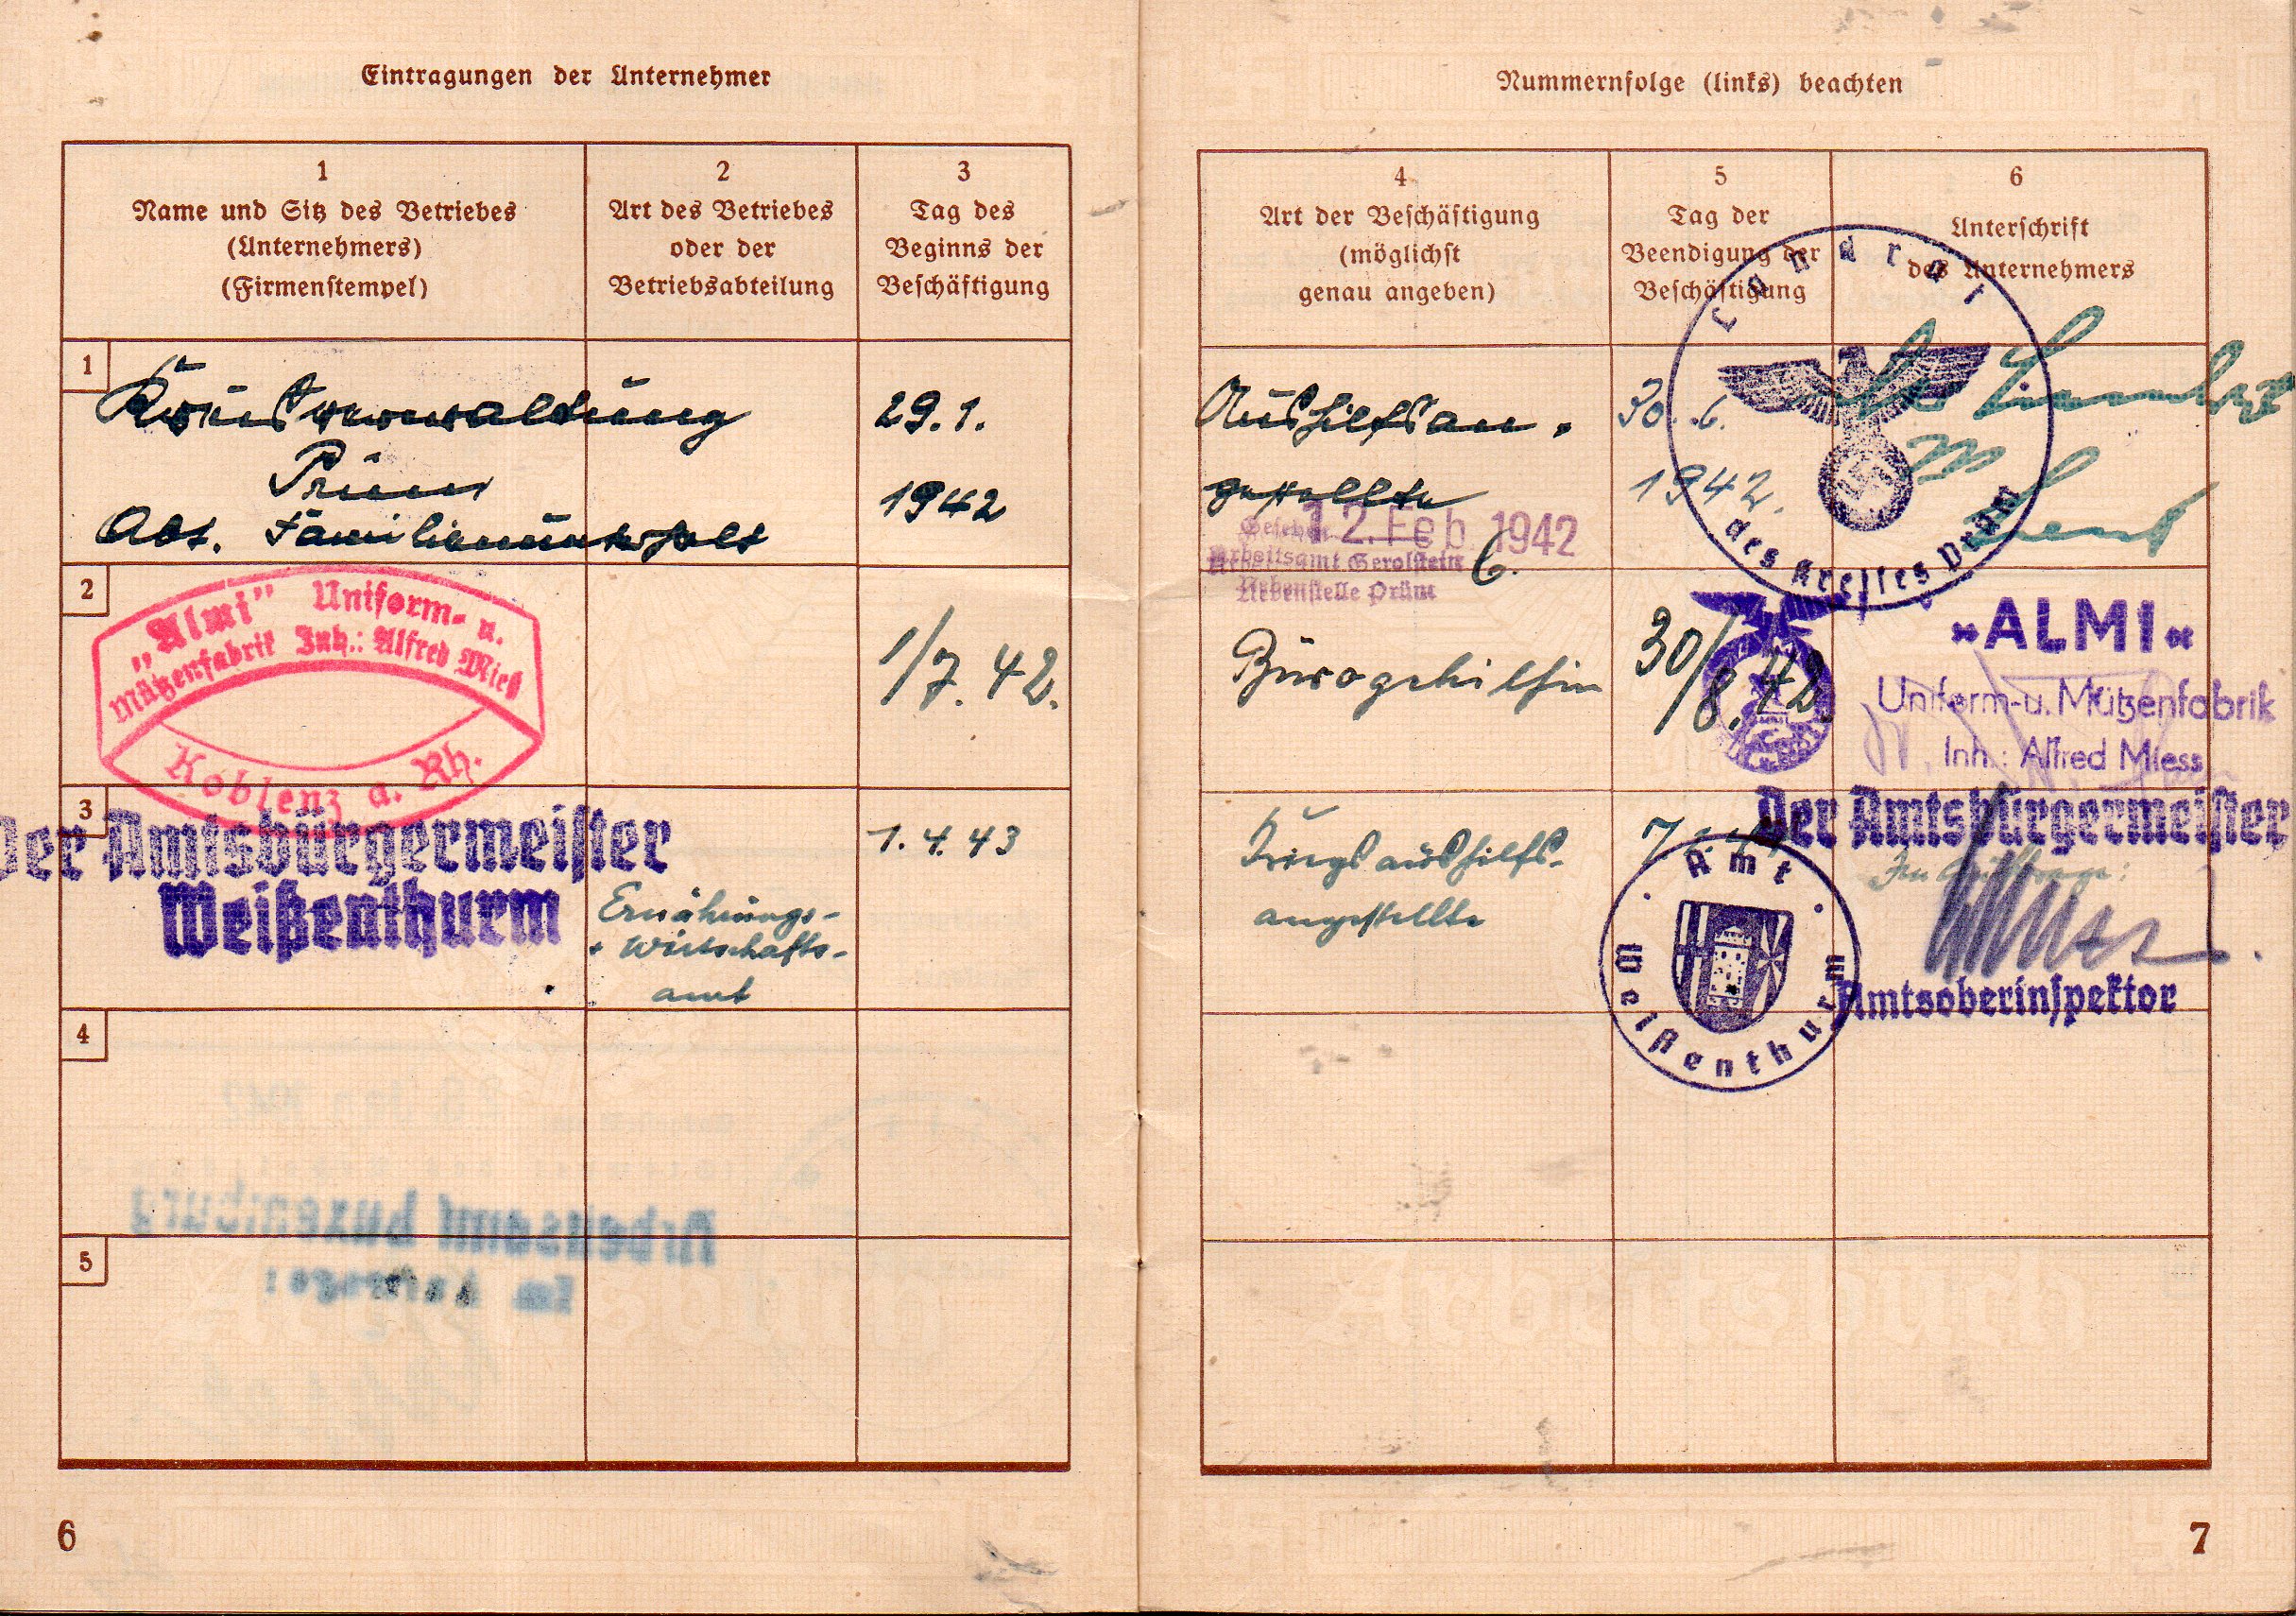 Eintragungen der Unternehmer
1
Name und Sitz des Betriebes
(Unternehmers)
(Firmenstempel)
2
Art des Betriebes
oder der
Betriebsabteilung
3
Tag des
Beginns der
Beschäftigung
1
Kreisverwaltung
Prüm
Abt. Familienunterhalt
29.1.
1942
2
"Almi" Uniform- u.
Mützenfabrik Inh.: Alfred Mieß
Koblenz a. Rh.
1/7. 42.
3
Der Amtsbürgermeister
Weißenthurm
Ernährungs-
+ Wirtschafts-
amt
1. 4. 43
4
Arbeitsamt Luxemburg
Im Auftrage:
5
6
Nummernfolge (links) beachten
4
Art der Beschäftigung
(möglichst
genau angeben)
5
Tag der
Beendigung der
Beschäftigung
6
Unterschrift
des Unternehmers
Aushilfsan-
gestellte
Gesehen 12. Feb. 1942
Arbeitsamt Gerolstein
Nebenstelle Prüm
30. 6.
1942.
Landrat
des Kreises Prüm
Bürogehilfin
30/8. 42.
»ALMI«
Uniform-u. Mützenfabrik
Inh.: Alfred Miess
Kriegsaushilfs-
angestellte
Der Amtsbürgermeister
Im Auftrage:
Amtsoberinspektor
Amt
Weißenthurm
Arbeitsbuch
7